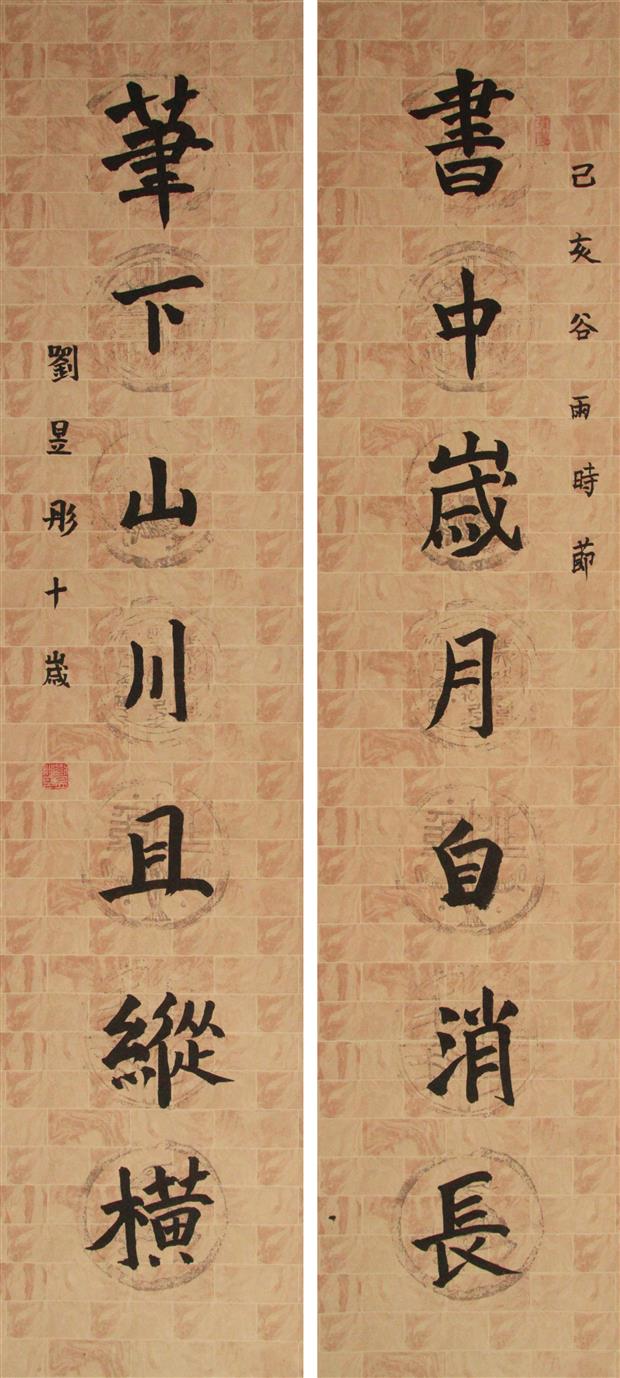 己亥谷雨時節
書中歲月自消長
筆下山川且縱橫
劉昱彤十歲